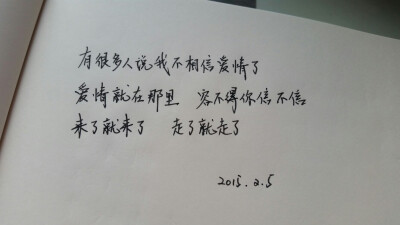 有很多人说我不相信爱情了
爱情就在那里 容不得你信不信
来了就来了 走了就走了
2015.2.5